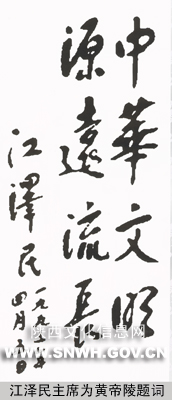 中華文明
源遠流長
江澤民
一九九二年
四月五日
陕西文化信息网
WWW.SNWH.GOV.CN
江泽民主席为黄帝陵题词